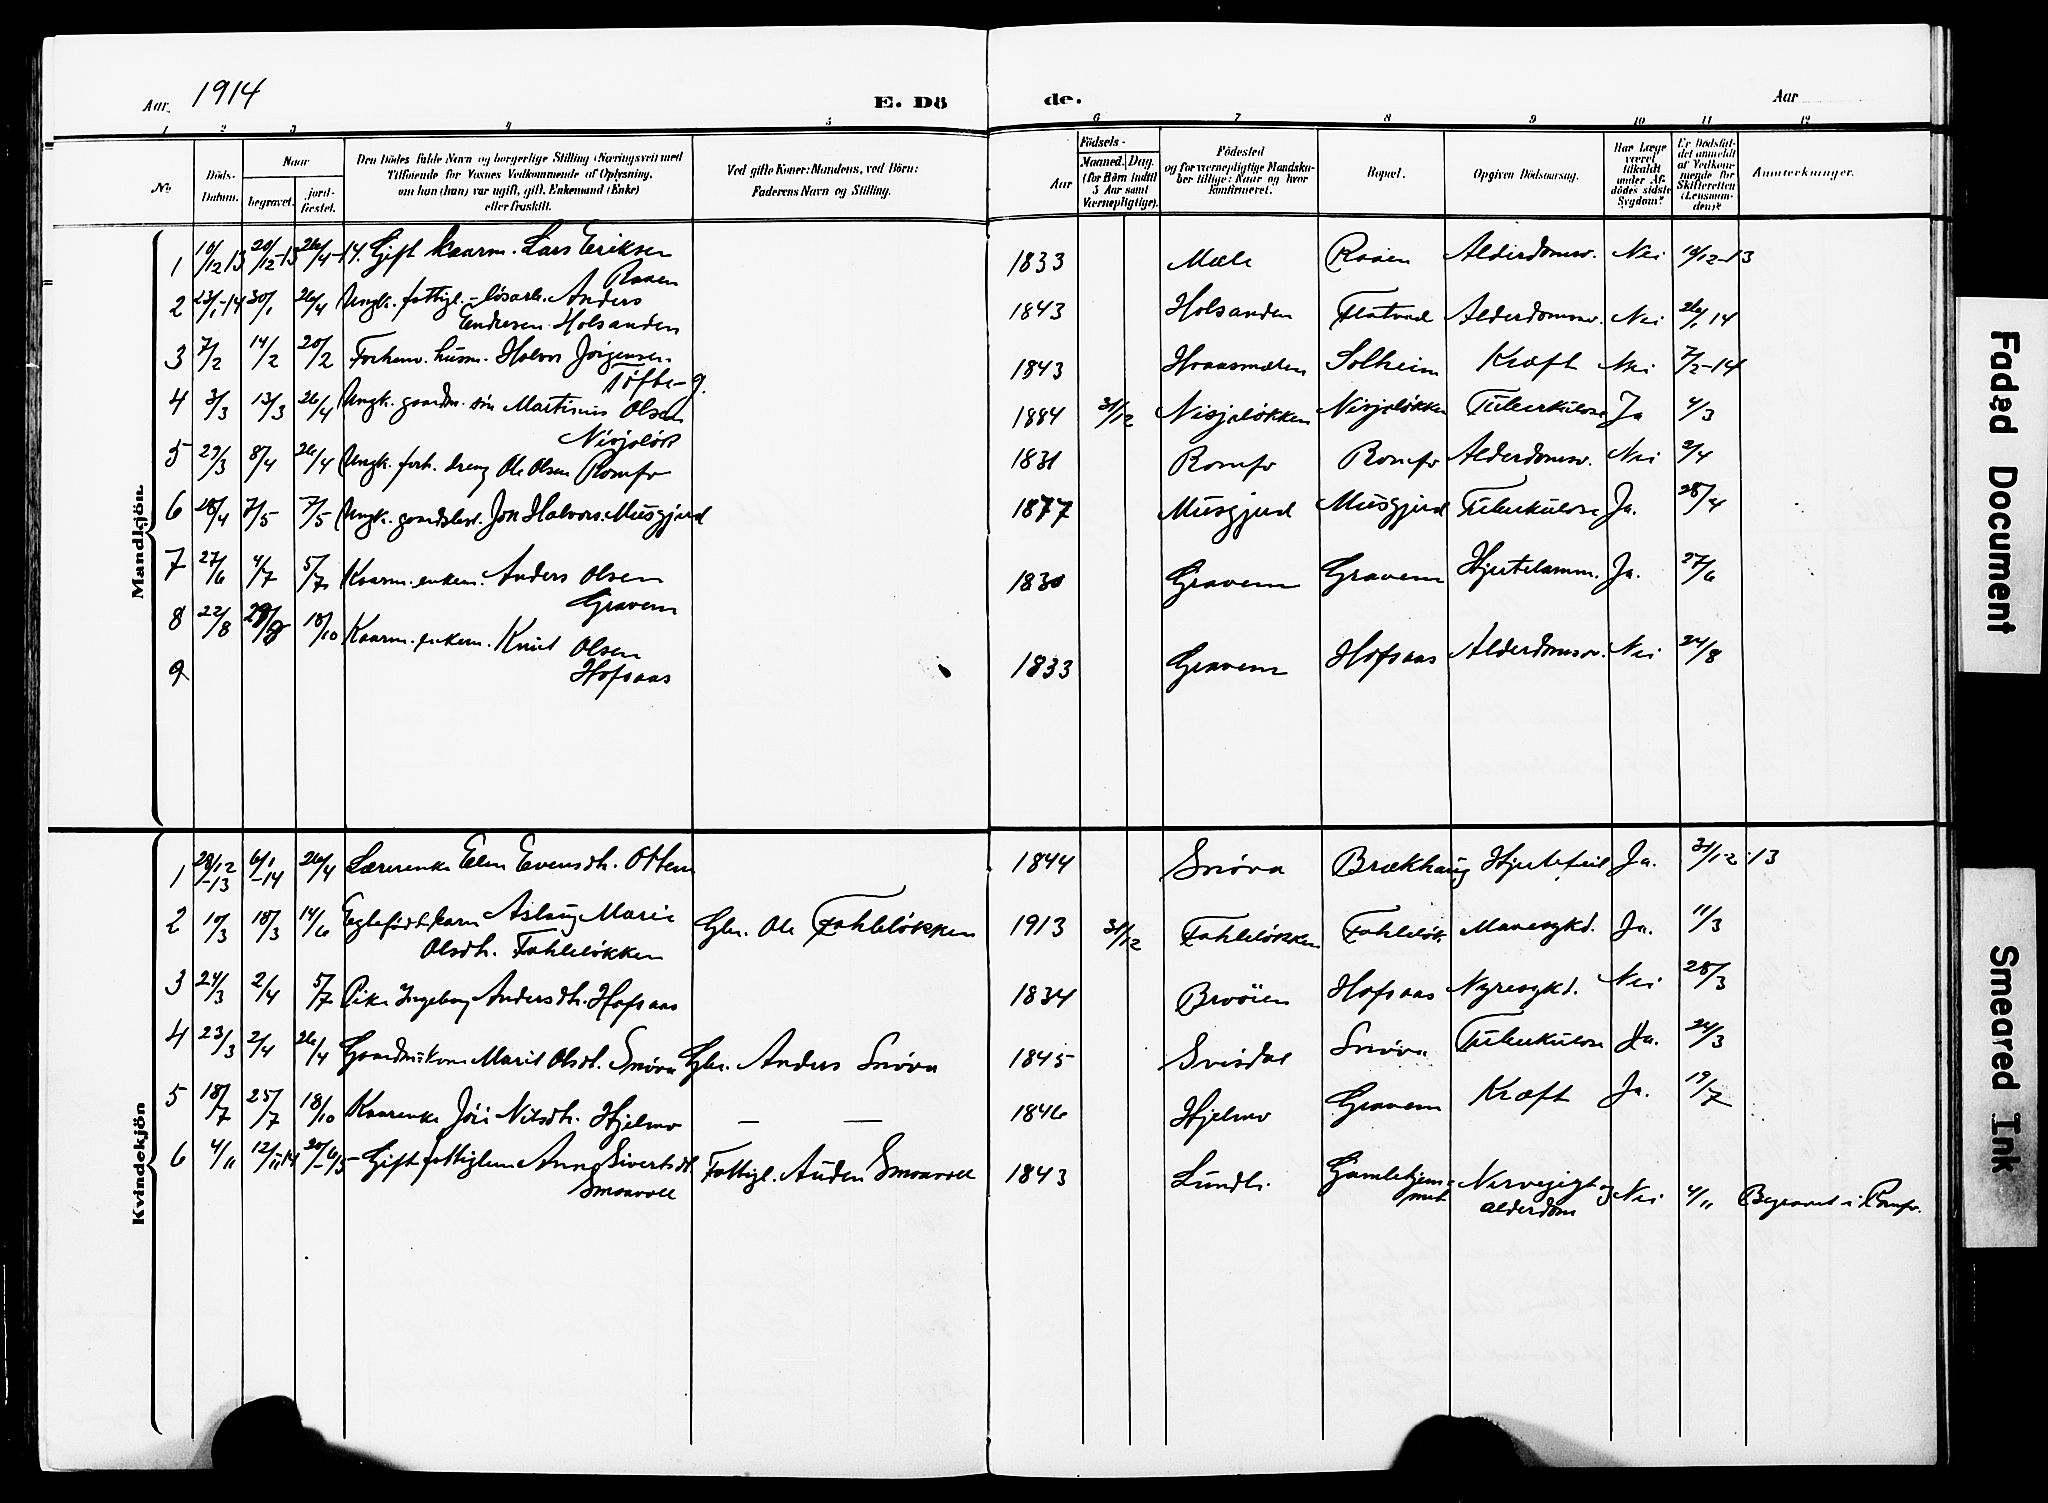 Aar. 1914
E. Dö
de.
Aar
1 2 3 4 5 6 7 8 9 10 11 12
No
Döds-Datum.
Naar
begravet.
jord-fæstet.
Den Dödes fulde Navn og borgerlige Stilling (Næringsvei) med
Tilföiende for Voxnes Vedkommende af Oplysning,
om han (hun) var ugift, gift, Enkemand (Enke)
eller fraskilt.
Ved gifte Koner: Mandens, ved Börn:
Faderens Navn og Stilling.
Födsels-
Aar
Maaned. Dag.
(for Börn indtil
5 Aar samt
Værnepligtige).
Födested
og for værnepligtige Mandskaber tillige: Naar og hvor
konfirmeret.
Bopæl.
Opgiven Dödsaarsag.
Har Læge
været
tilkaldt
under Afdödes sidste
Sygdom?
Er Dödsfaldet anmeldt
af Vedkommende for
Skifteretten
(Lensmanden)?
Anmerkninger.
Mandkjön.
1 10/12 13 20/12-13 26/4-14. Gift kaarm. Lars Eriksen 1833 Mæle Raaen Alderdomssv. Nei 10/12-13
Raaen
2 23/1-14 30/1 26/4 Ungk. fattigl.-lösarb. Anders 1843 Holsanden Flatvad Alderdomssv. Nei 26/1 14
Endresen Holsanden
3 7/2 14/2 20/2 Forhenv. husm. Halvor Jörgensen 1843 Hraasmælen Solheim Kræft Nei 7/2-14
4 3/3 13/3 26/4 Ungk. gaardm. sön Martinus Olsen 1884 31/12 Nisjaløkken Nisjaløkken Tuberkulose Ja 4/3
Nisjaløk
5 29/3 8/4 26/4 Ungk. forh. dreng Ole Olsen Romfo 1831 Romfo Romfo Alderdomssv. Nei 2/4
6 28/4 7/5 7/5 Ungk. gaardsbest. Jon Halvors. Musgjerd 1877 Musgjerd Musgjerd Tuberkulose Ja. 28/4
7 27/6 4/7 5/7 Kaarm. enkem. Anders Olsen 1830 Gravem Gravem Hjertelamm. Ja. 27/6
Gravem
8 22/8 18/10 Kaarm. enkem. Knut Olsen 1833 Gravem Hofsaas Alderdomssv. Nei 24/8
Hofsaas
9
Kvindekjön
1 28/12-13 6/1-14 26/4 Lærerenke Elen Evensdh. Ottem 1844 Snöva Brækhaug Hjertefeil Ja. 31/12-13
2 10/3 18/3 14/6 Egtefödt barn Aslaug Marie Gbr. Ole Fahleløkken 1913 31/12 Fahleløkken Fahleløk. Mavesygd. Ja. 11/3
Olsdh. Fahleløkken
3 24/3 2/4 5/7 Pike Ingeborg Andersdh. Hofsaas 1834 Hofsaas Nyresygd. Nei 28/3
4 23/3 2/4 26/4 Gaardm. kone Marit Olsdt. Snöva Gbr. Anders Snöva 1845 Svisdal Snöva Tuberkulose Ja. 24/3
5 18/7 25/7 18/10 Kaarenke Jöri Nilsdh. Hjelmo — — 1846 Hjelmo Gravem Kræft Ja. 19/7
6 4/11 12/11-14 20/6-15 Gift fattiglem Anne Sivertsdt. Fattigl. Auden Smaavoll 1843 Lundli Gamlehjem- Nervegigt og Nei 4/11 Begravet i Romfo.
Smaavoll met alderdom
Faded Document
Smeared Ink